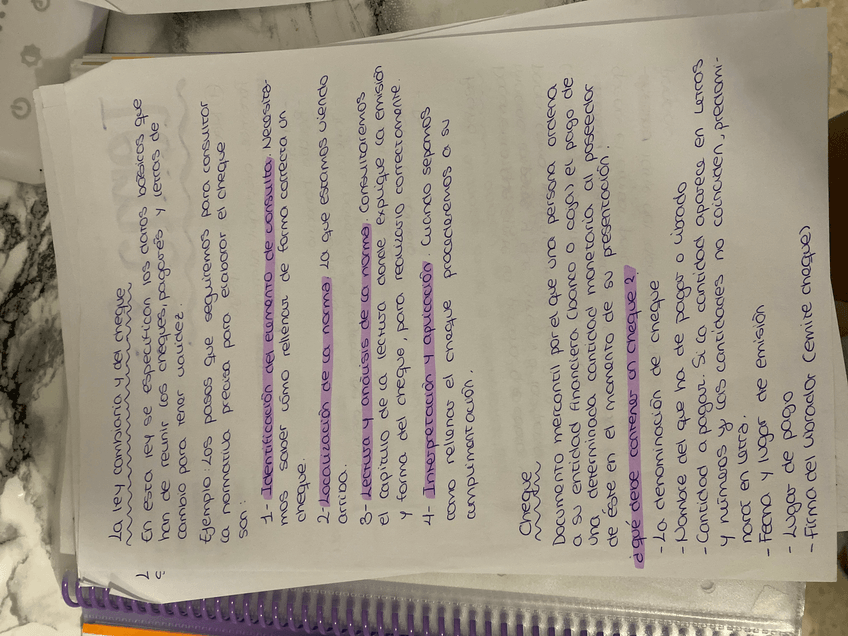 La ley cambiaria y del cheque
En esta ley se especifican los datos básicos que
han de reunir los cheques, pagarés y letras de
cambio para tener validez.
Ejemplo: Los pasos que seguiremos para consultar
la normativa precisa para elaborar el cheque
son:
1- Identificación del elemento de consulta. Necesita-
mos saber cómo rellenar de forma correcta un
cheque.
2- Localización de la norma. La que estamos viendo
arriba.
3- Lectura y análisis de la norma. Consultaremos
el capítulo de la lectura donde explique la emisión
y forma del cheque, para realizarlo correctamente.
4- Interpretación y aplicación. Cuando sepamos
como rellenar el cheque procederemos a su
cumplimentación.
Cheque
Documento mercantil por el que una persona ordena
a su entidad financiera (banco o caja) el pago de
una determinada cantidad monetaria al poseedor
de éste en el momento de su presentación.
¿qué debe contener un cheque?
- La denominación de cheque
- Nombre del que ha de pagar o librado
- Cantidad a pagar. Si la cantidad aparece en letras
y números y las cantidades no coinciden, predomi-
nará en letra.
- Fecha y lugar de emisión
- Lugar de pago
- Firma del librador (emite cheque)